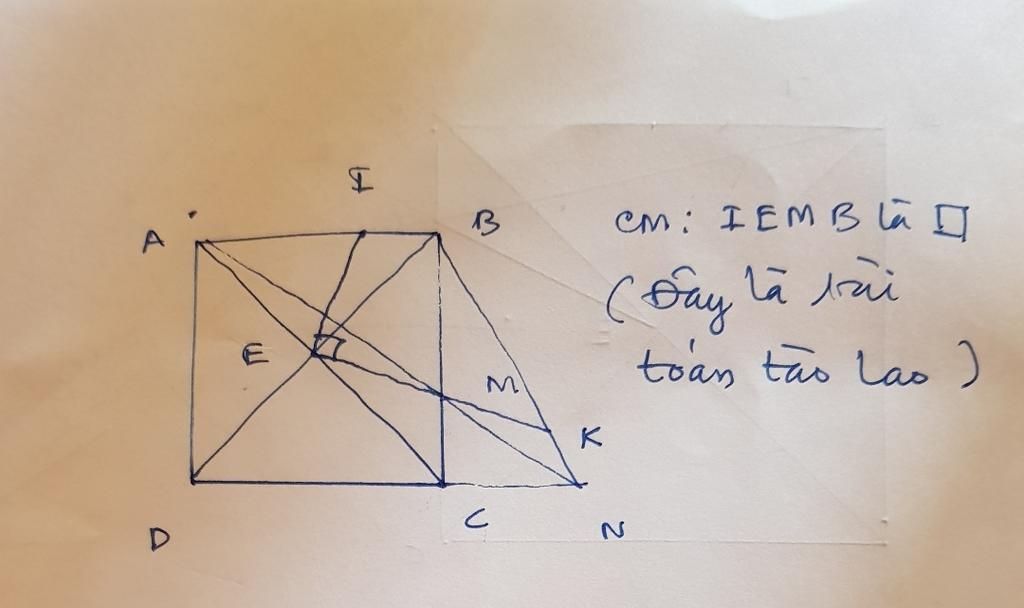 I
A
B
CM: IEMB là □
(Đây là bài
toán tào lao)
E
M
K
D
C
N